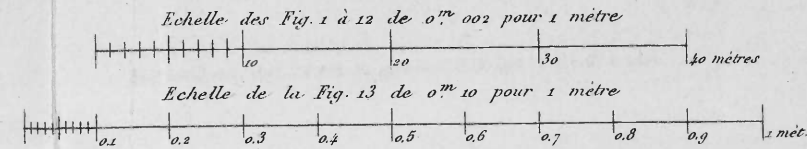 Echelle des Fig. 1 à 12 de 0.m 002 pour 1 mètre
10 20 30 40 mètres
Echelle de la Fig. 13 de 0.m 10 pour 1 mètre
0.1 0.2 0.3 0.4 0.5 0.6 0.7 0.8 0.9 1 mèt.